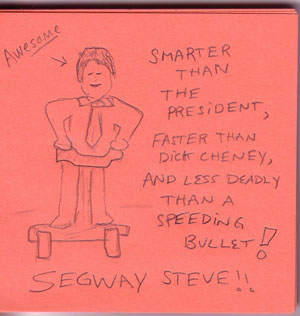 Awesome
SMARTER
THAN
THE
PRESIDENT,
FASTER THAN
DICK CHENEY,
AND LESS DEADLY
THAN A
SPEEDING
BULLET!
SEGWAY STEVE!!